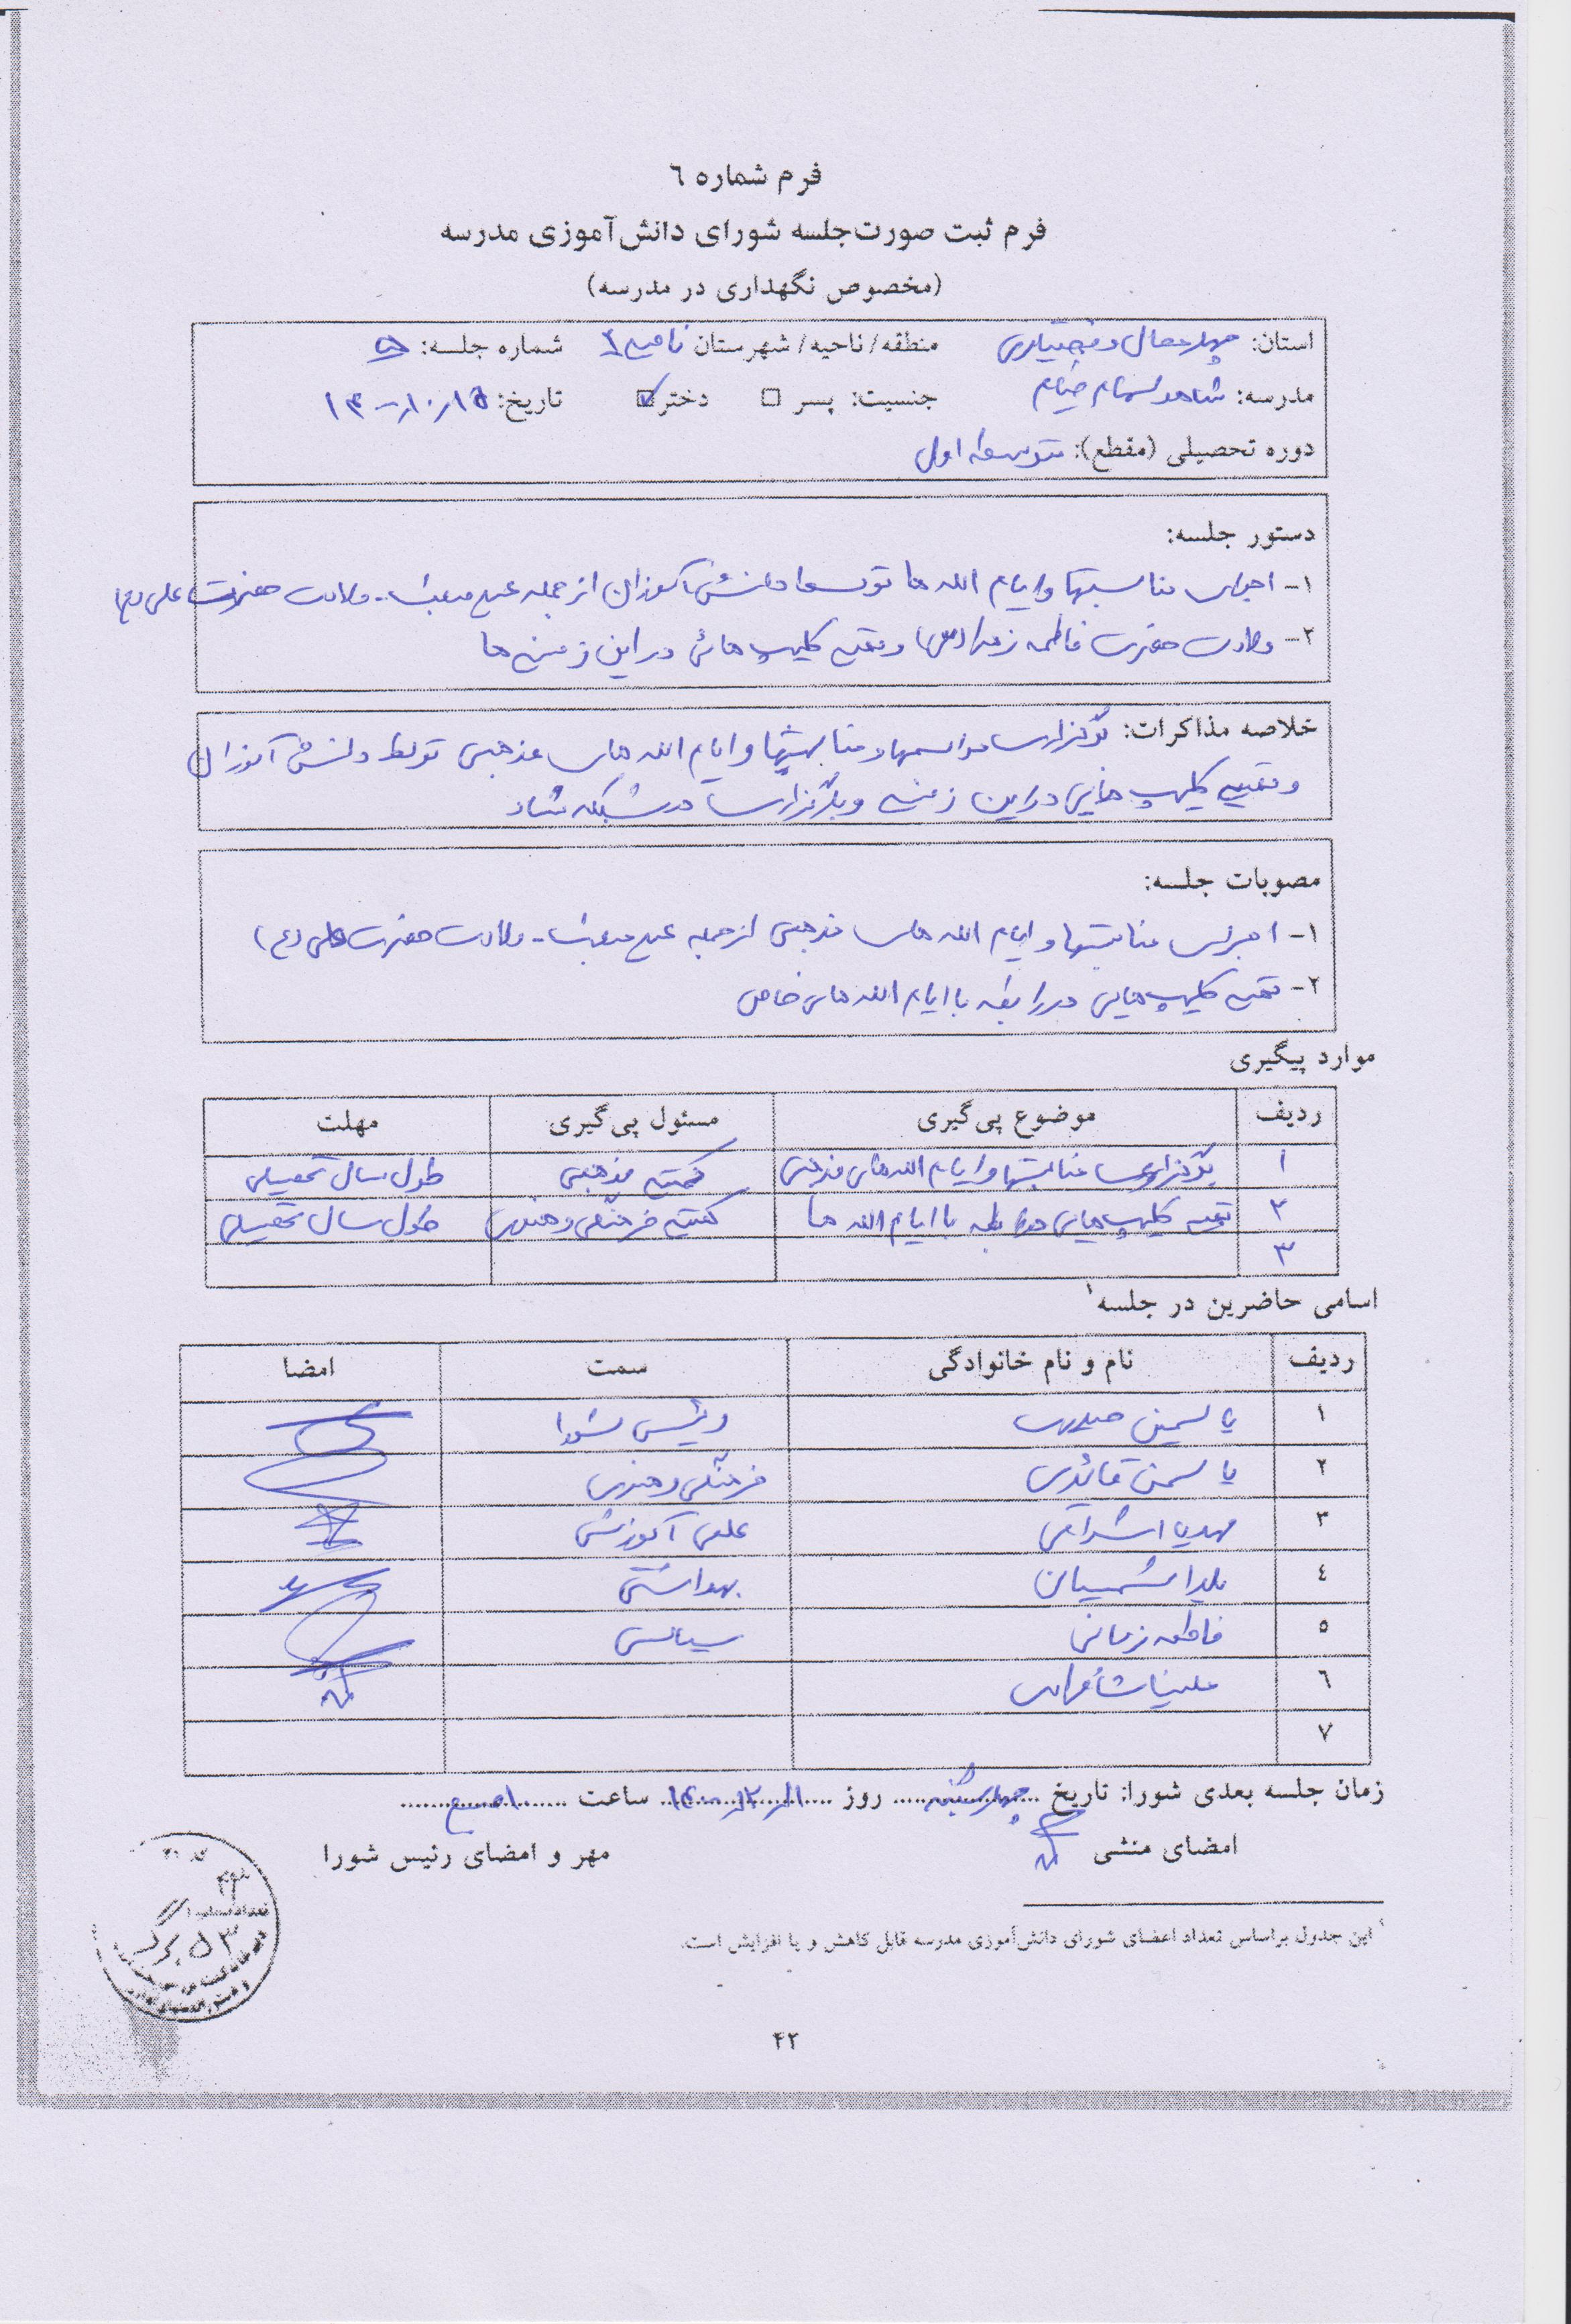 فرم شماره ٦
فرم ثبت صورت‌جلسه شورای دانش‌آموزی مدرسه
(مخصوص نگهداری در مدرسه)
استان: چهارمحال و بختیاری منطقه/ناحیه/شهرستان ناحیه ۲ شماره جلسه: ۵
مدرسه: شاهد امام خیام جنسیت: پسر ☐ دختر ☑ تاریخ: ۱۴۰۰/۱۰/۱۵
دوره تحصیلی (مقطع): متوسطه اول
دستور جلسه:
۱- اجرای مناسبتها و ایام الله ها توسط دانش آموزان از جمله عید مبعث - ولادت حضرت علی (ع)
۲- ولادت حضرت فاطمه زهرا (س) و تهیه کلیپ هائی در این زمینه ها
خلاصه مذاکرات: برگزاری مراسمها و مناسبتها و ایام الله های مذهبی توسط دانش آموزان
و تهیه کلیپ هایی در این زمینه و بارگزاری در شبکه شاد
مصوبات جلسه:
۱- اجرای مناسبتها و ایام الله های مذهبی از جمله عید مبعث - ولادت حضرت علی (ع)
۲- تهیه کلیپ هایی در رابطه با ایام الله های خاص
موارد پیگیری
ردیف موضوع پی‌گیری مسئول پی‌گیری مهلت
۱ برگزاری مناسبتها و ایام الله های مذهبی کمیته مذهبی طول سال تحصیلی
۲ تهیه کلیپ هایی در رابطه با ایام الله ها کمیته فرهنگی و هنری طول سال تحصیلی
۳
اسامی حاضرین در جلسه۱
ردیف نام و نام خانوادگی سمت امضا
۱ یاسمین حیدری رئیس شورا
۲ یاسمن قائدی فرهنگی و هنری
۳ مهدیا اشراقی علمی آموزشی
٤ یلدا شمسیان بهداشتی
٥ فاطمه زمانی سیاسی
٦ ملینا شاهرادی
۷
زمان جلسه بعدی شورا: تاریخ چهارشنبه روز ۱۴۰۰/۱۲/۱۱ ساعت ۱۰ صبح
امضای منشی مهر و امضای رئیس شورا
۱ این جدول براساس تعداد اعضای شورای دانش‌آموزی مدرسه قابل کاهش و یا افزایش است.
۴۲